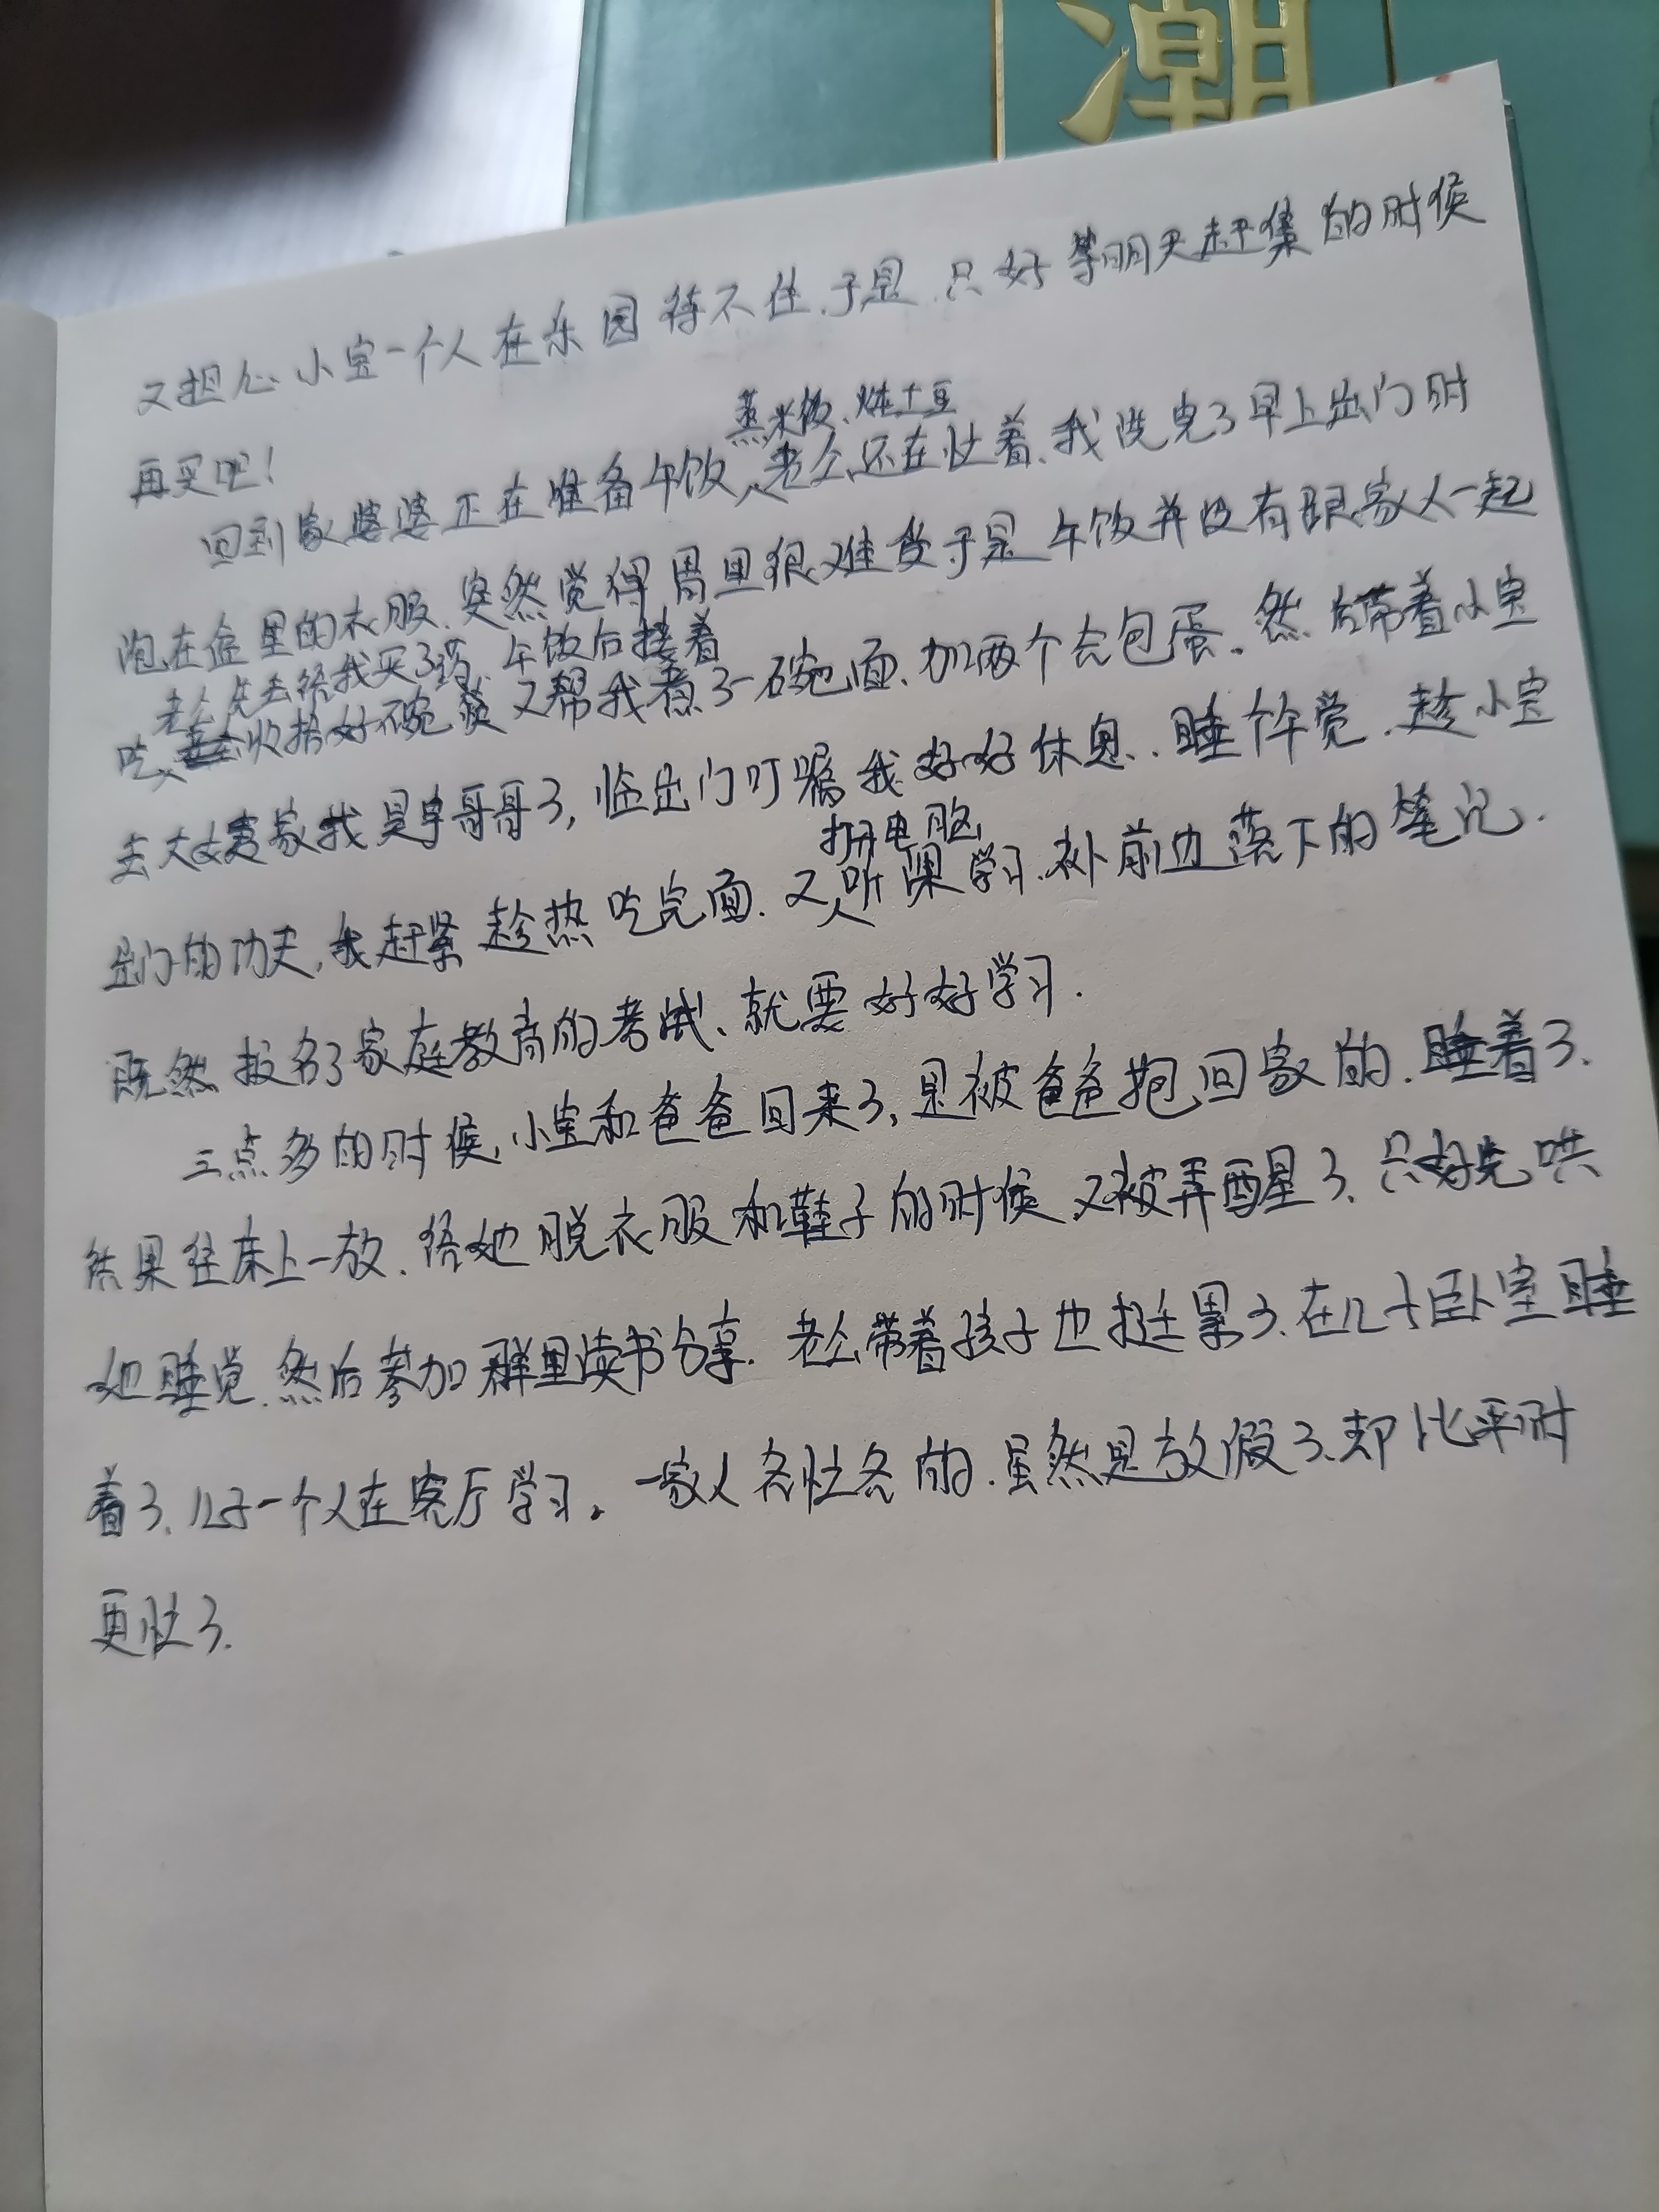 潮
又担心小宝一个人在乐园待不住,于是,只好等明天赶集的时候
再买吧!
蒸米饭、炖土豆
回到家婆婆正在准备午饭、老公还在忙着、我洗完了早上出门时
泡在盆里的衣服.突然觉得胃里很难受于是午饭并没有跟家人一起
老公先去给我买了药,午饭后接着
吃,收拾好碗筷又帮我煮了一碗面、加两个荷包蛋。然后带着小宝
去大姨家找昊宇哥哥了,临出门叮嘱我好好休息、睡个午觉.趁小宝
打开电脑
出门的功夫,我赶紧趁热吃完面.又听课学习.补前边落下的笔记.
既然报名了家庭教育的考试、就要好好学习.
三点多的时候,小宝和爸爸回来了,是被爸爸抱回家的.睡着了.
结果往床上一放.给她脱衣服和鞋子的时候又被弄醒了、只好先哄
她睡觉.然后参加群里读书分享.老公带着孩子也挺累了.在儿子卧室睡
着了.儿子一个人在客厅学习。一家人各忙各的.虽然是放假了.却比平时
更忙了.